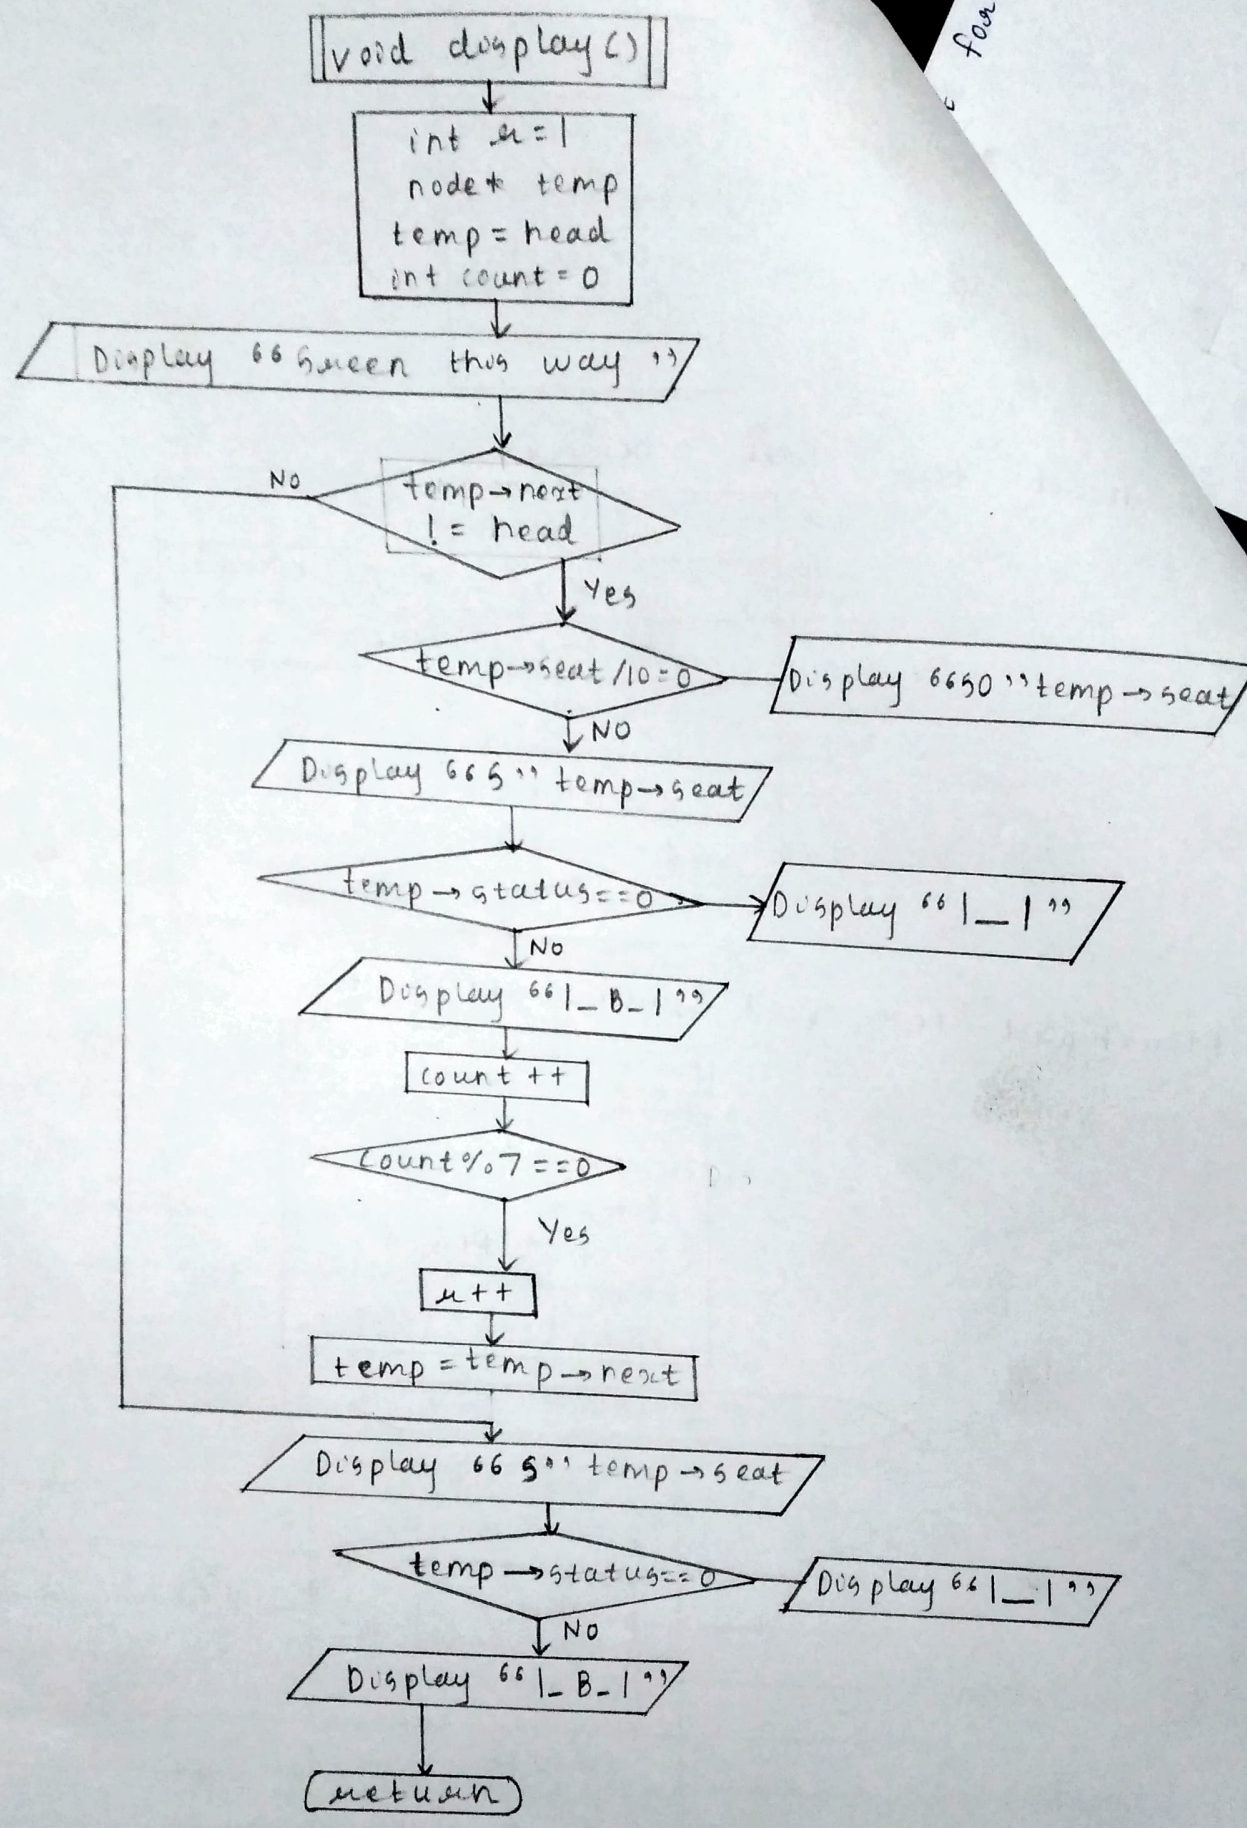 for
void display()
int r=1
node* temp
temp = head
int count = 0
Display “Screen this way”
temp→next
!= head
No
Yes
temp→seat/10=0
Display “S0” temp→seat
NO
Display “S” temp→seat
temp→status==0
Display “|_|”
No
Display “|_B_|”
count ++
count%7==0
Yes
r++
temp = temp→next
Display “S” temp→seat
temp→status==0
Display “|_|”
NO
Display “|_B_|”
return